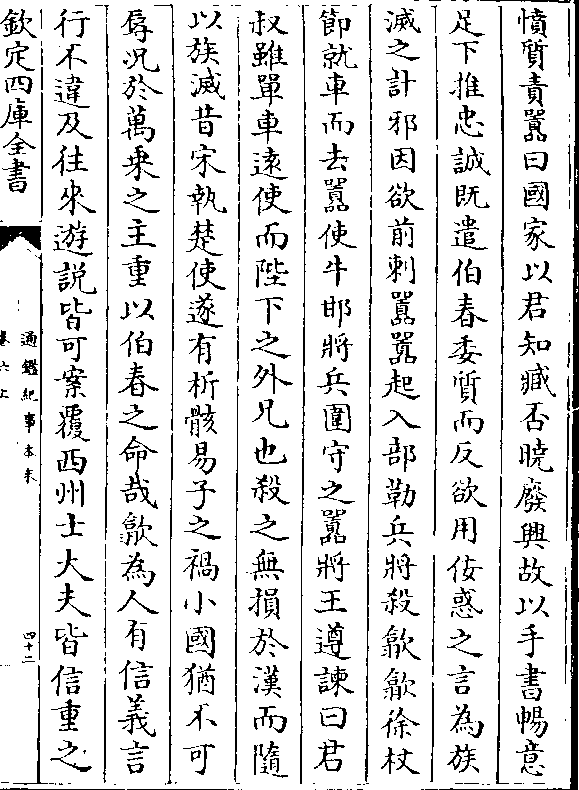 憤質責嚻曰國家以君知臧否曉廢興故以手書暢意
足下推忠誠既遣伯春委質而反欲用佞惑之言為族
滅之計邪因欲前刺嚻嚻起入部勒兵將殺歙歙徐杖
節就車而去嚻使牛邯將兵圍守之嚻將王遵諫曰君
叔雖單車遠使而陛下之外兄也殺之無損於漢而隨
以族滅昔宋執楚使遂有析骸易子之禍小國猶不可
辱况於萬乗之主重以伯春之命哉歙為人有信義言
行不違及往來遊説皆可案覆西州士大夫皆信重之
欽定四庫全書
通鑑紀事本末
卷六上
四十二